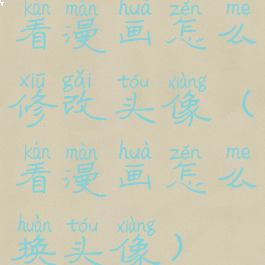 kàn màn huà zěn me
看漫画怎么
xiū gǎi tóu xiàng
修改头像（
kàn màn huà zěn me
看漫画怎么
huàn tóu xiàng
换头像）